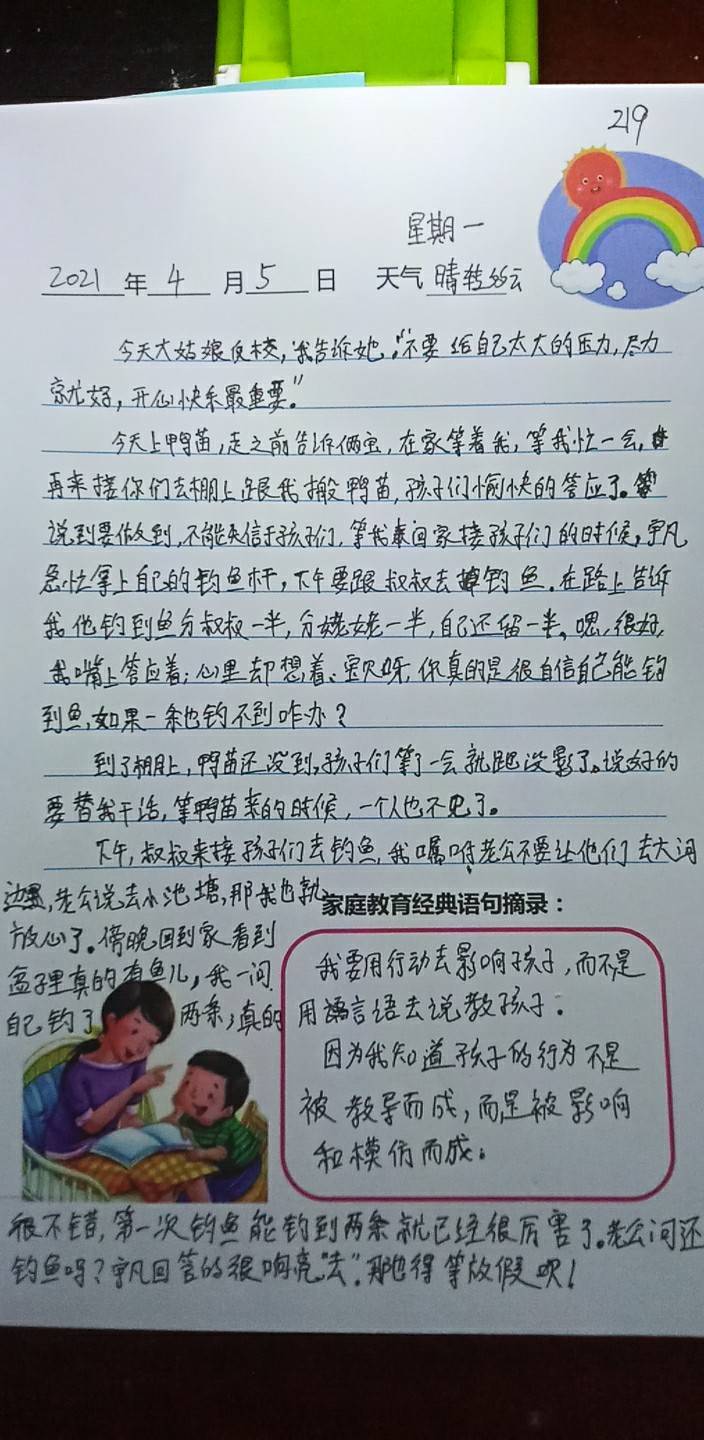 219
星期一
2021年4月5日 天气晴转多云
今天大姑娘返校,我告诉她:"不要给自己太大的压力,尽力
就好,开心快乐最重要。"
今天上鸭苗,走之前告诉俩宝,在家等着我,等我忙一会,
再来接你们去棚上跟我搬鸭苗,孩子们愉快的答应了。
说到要做到,不能失信于孩子们,等我回家接孩子们的时候,宇凡
急忙拿上自己的钓鱼杆,下午要跟叔叔去钓鱼。在路上告诉
我他钓到鱼分叔叔一半,分姥姥一半,自己还留一半。嗯,很好,
我嘴上答应着;心里却想着、宝贝呀,你真的是很自信自己能钓
到鱼,如果一条也钓不到咋办?
到了棚上,鸭苗还没到,孩子们等了一会就跑没影了。说好的
要替我干活,等鸭苗来的时候,一个人也不见了。
下午,叔叔来接孩子们去钓鱼,我嘱咐老公不要让他们去大河
边,老公说去小池塘,那我也就
放心了。傍晚回到家看到
盆子里真的有鱼儿,我一问
自己钓了两条,真的
家庭教育经典语句摘录:
我要用行动去影响孩子,而不是
用言语去说教孩子。
因为我知道孩子的行为不是
被教导而成,而是被影响
和模仿而成。
很不错,第一次钓鱼能钓到两条就已经很厉害了。老公问还
钓鱼吗?宇凡回答的很响亮"去",那也得等放假哦!